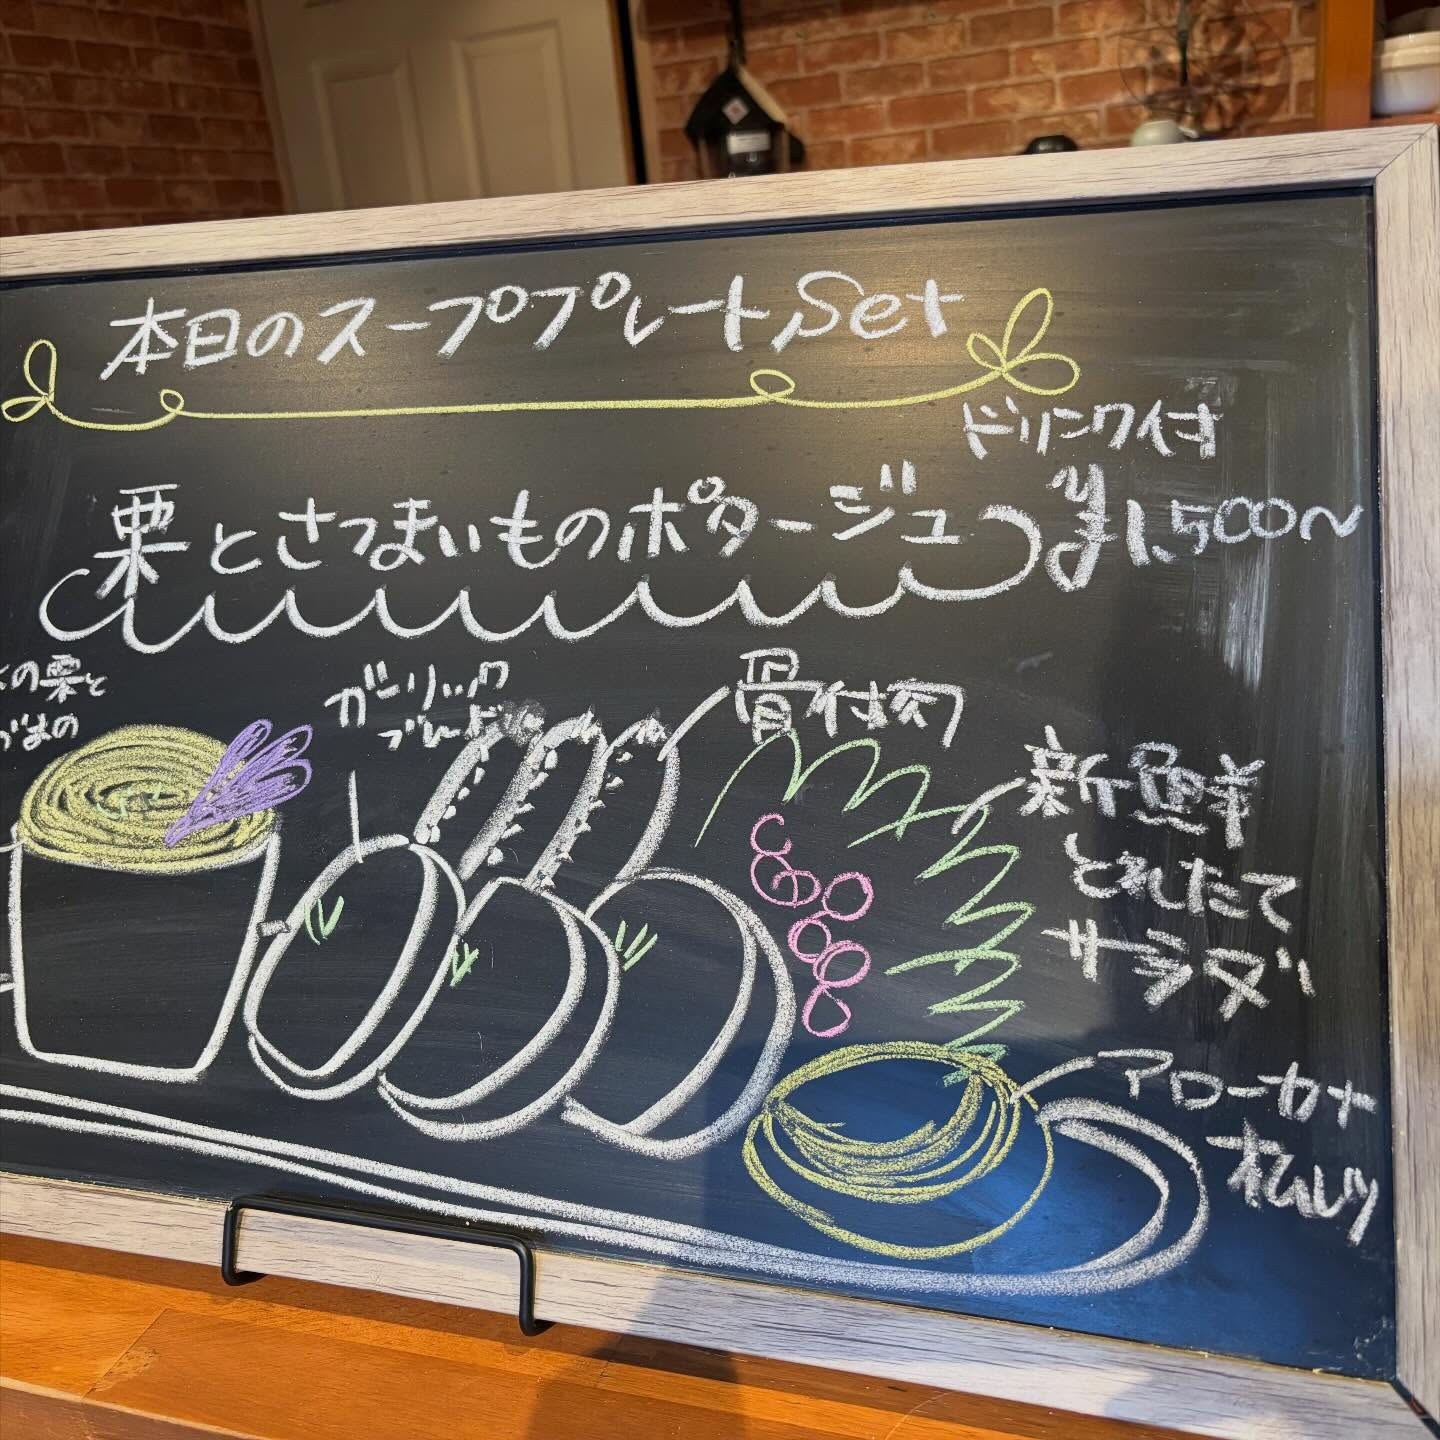 本日のスーププレートSet
ドリンク付
栗とさつまいものポタージュ
¥1,500〜
の栗と
まの
ガーリック
ブレッド
骨付肉
新鮮
とれたて
サラダ
アローカナ
オムレツ